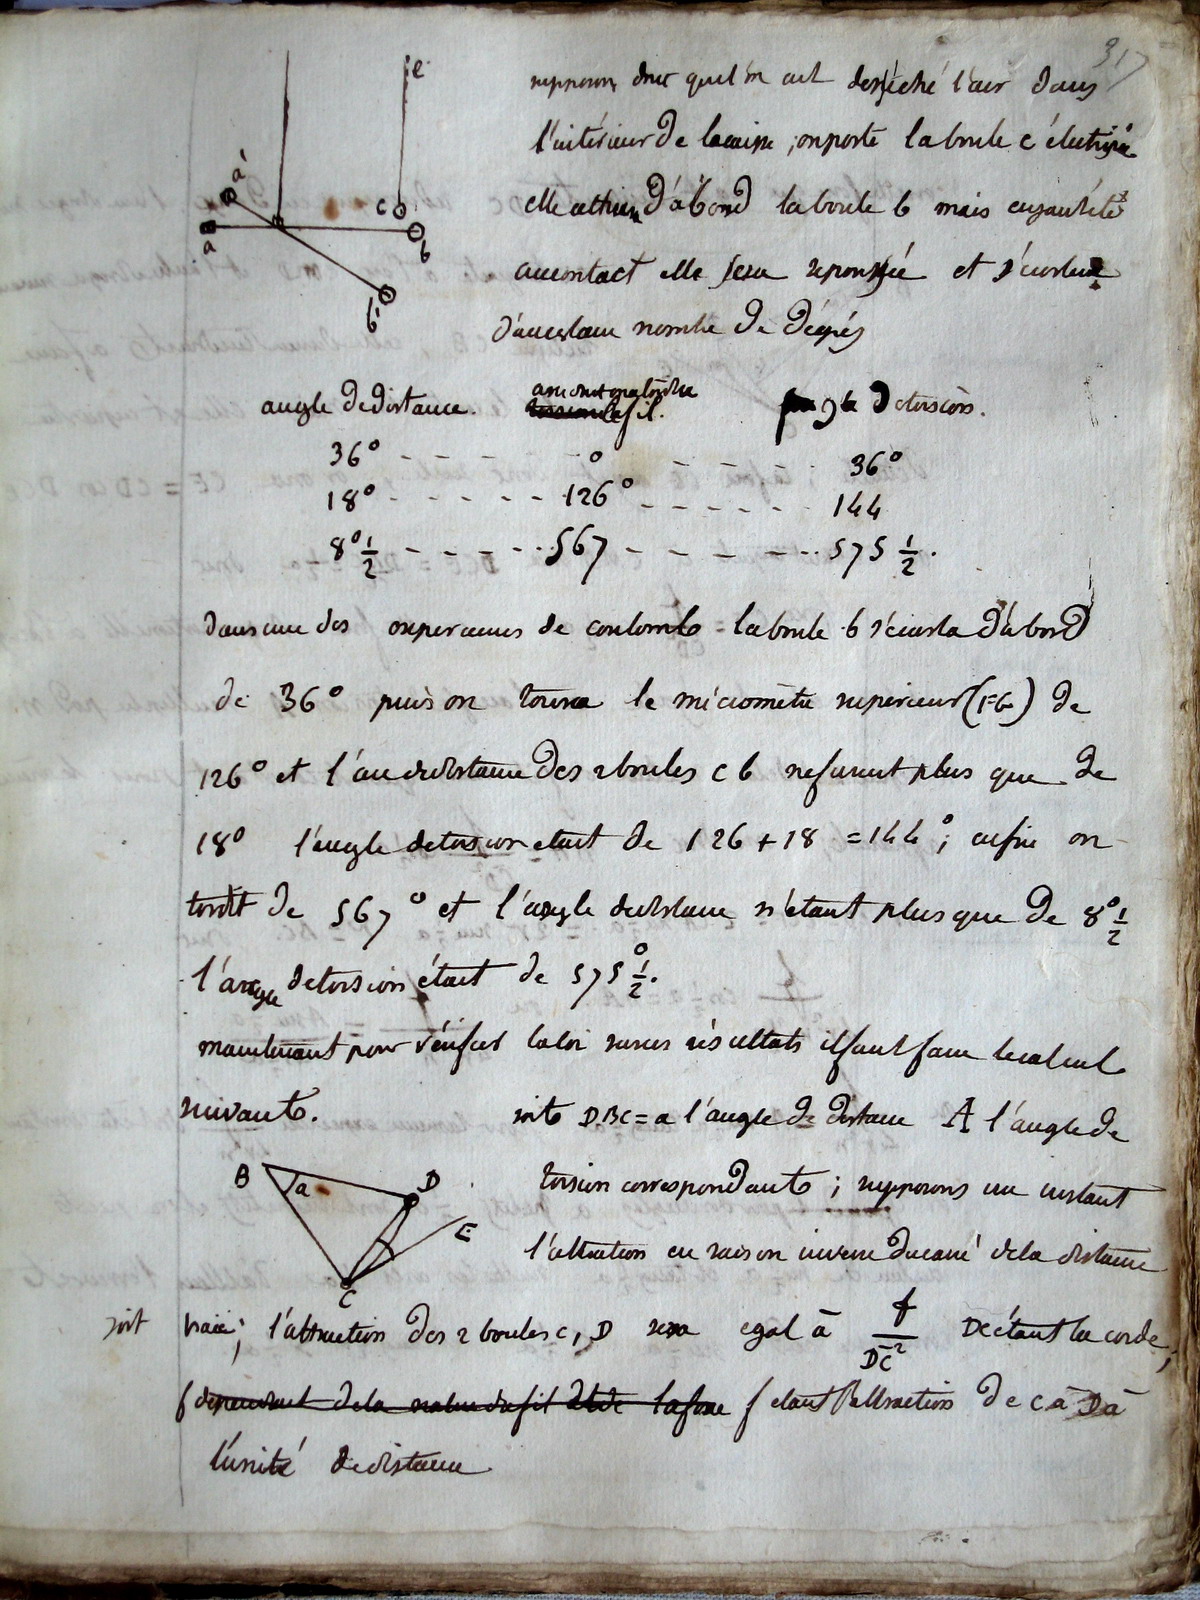 317
e
supposons donc quel'on ait desséché l'air dans
l'intérieur de la caisse ; on porte la boule c électrisée
elle attire d'abord la boule b mais ayant été
au contact elle sera repoussée et s'écartera
d'un certain nombre de dégrés
a'
a
c
b
b'
angle de distance.
fil.
de torsion.
36° - - - - - 0 - - - - 36°
18° - - - - - 126° - - - - - 144
8°½ - - - - - 567 - - - - - 575 ½.
dans une des experiences de coulomb la boule b s'écarta d'abord
de 36° puis on tourna le micromètre superieur (FG) de
126° et l'angle de distance des 2 boules c b ne furent plus que de
18° l'angle de torsion etait de 126 + 18 = 144° ; enfin on
tordit de 567° et l'angle de distance n'étant plus que de 8°½
l'angle de torsion était de 575°½.
maintenant pour vérifier la loi sur ces résultats il faut faire le calcul
suivant.
soit DBC = a l'angle de distance A l'angle de
torsion correspondante ; supposons un instant
l'attraction en raison inverse du carré de la distance
B
a
D
E
C
soit vraie ; l'attraction des 2 boules c, D sera egal à f/DC² DC étant la corde ;
f dependant de la nature du fil et de la force f etant l'attraction de c à D à
l'unité de distance